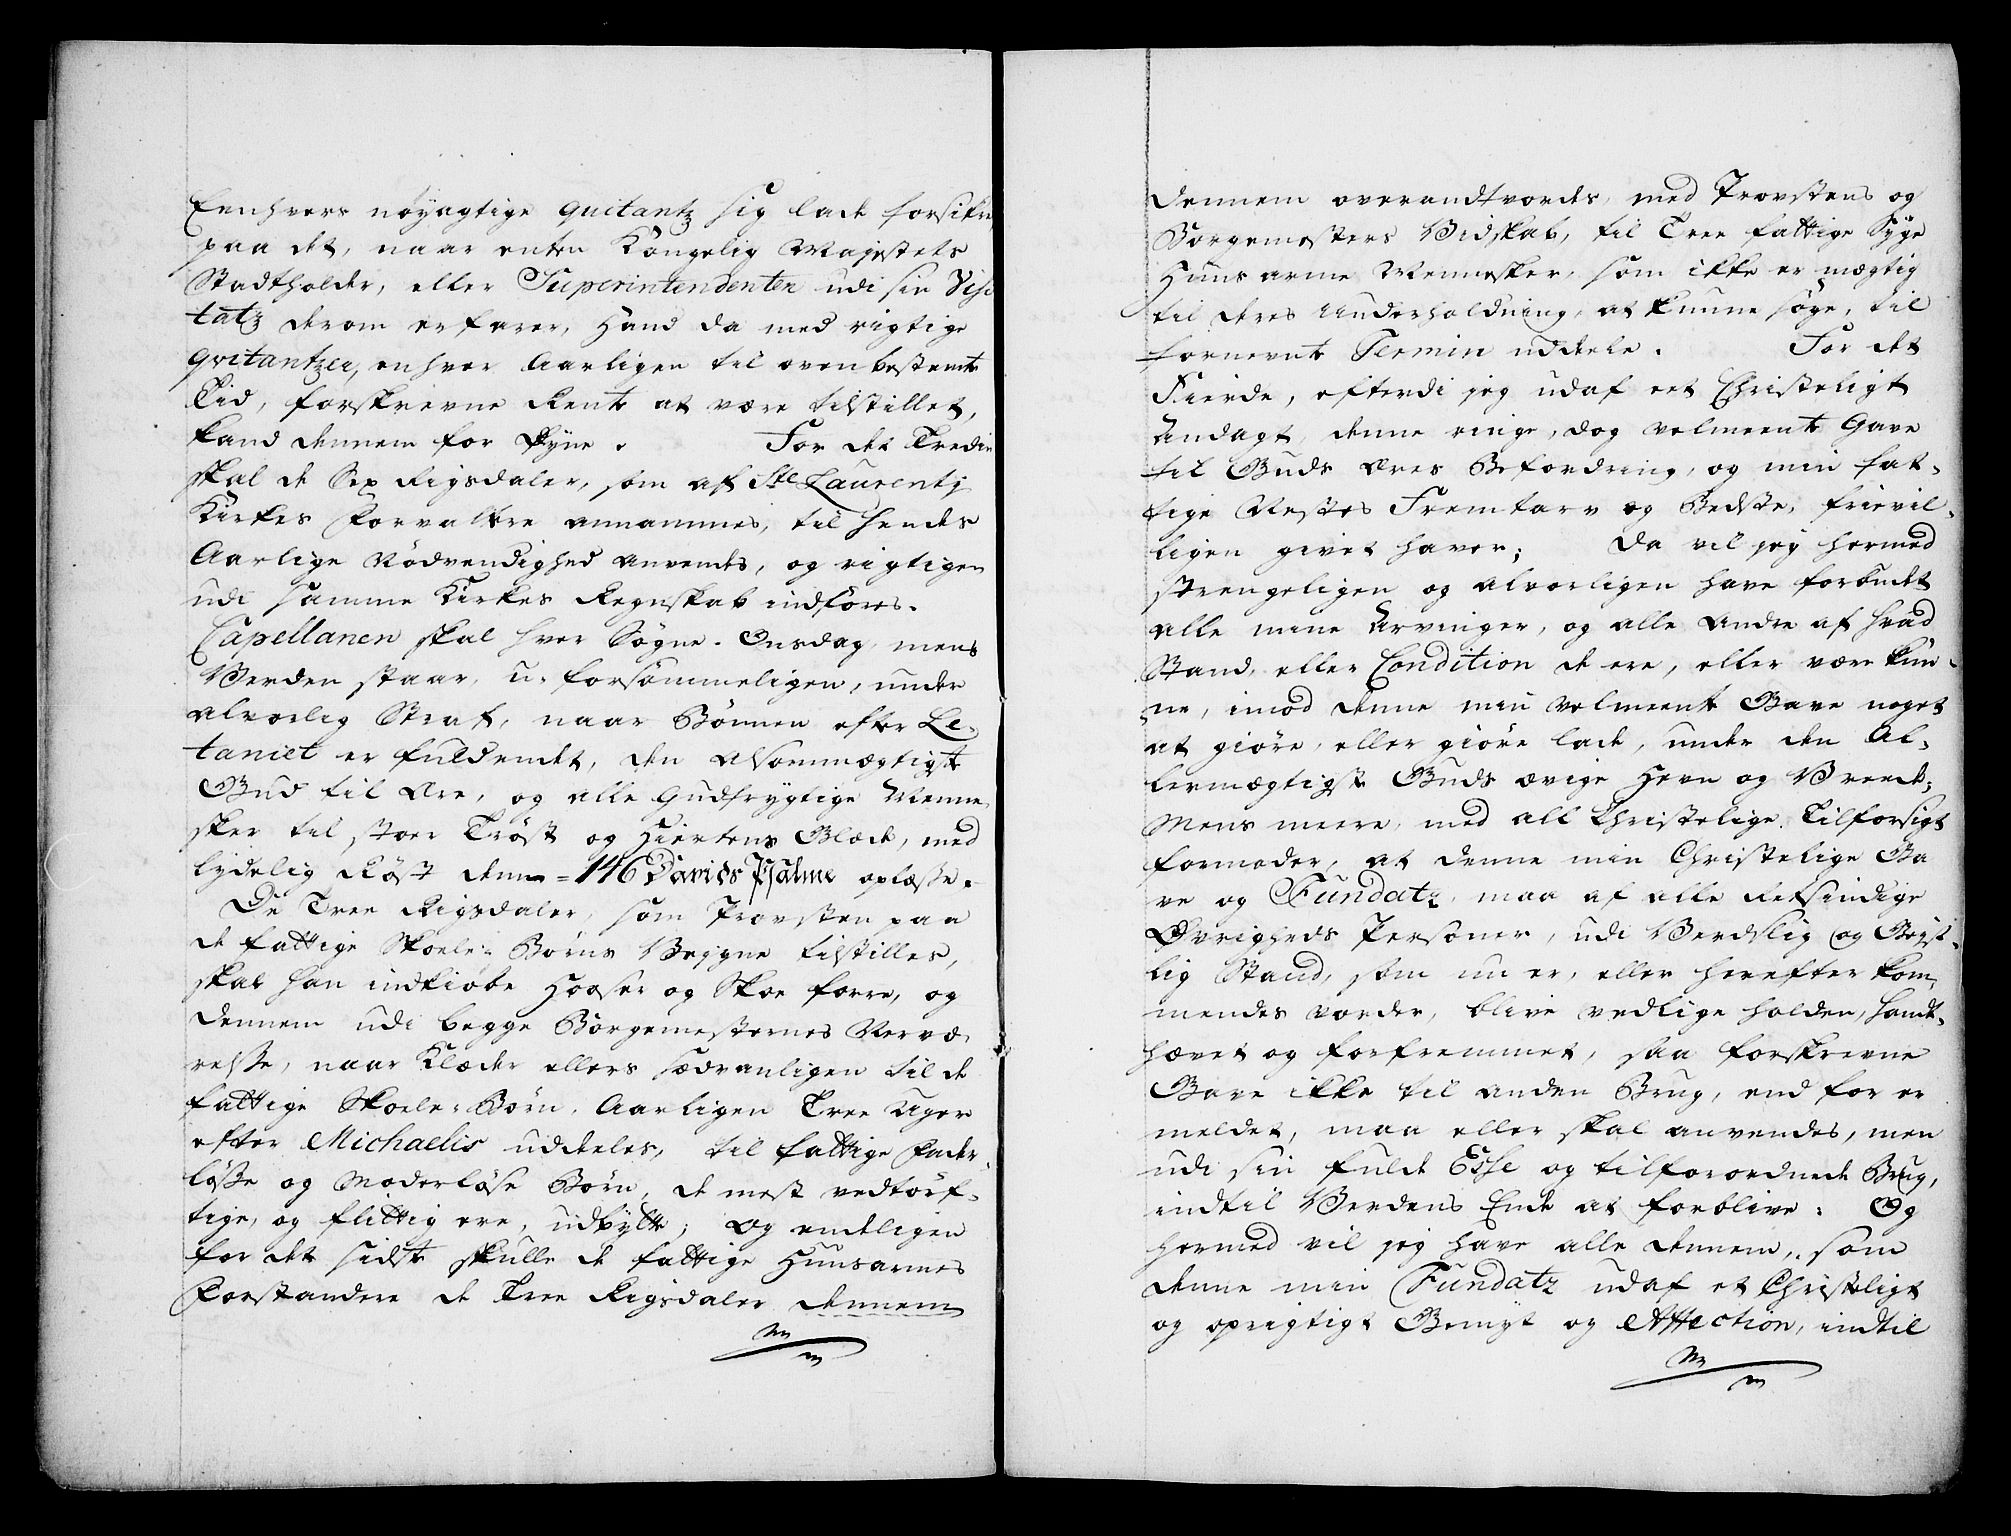 Eenhvers nøyagtige quitantz sig lade forsikre
paa det, naar enten Kongelig Majestets
Stadtholder, eller Superintendenten udi sin Visi
tatz derom erfarer, hand da med rigtige
qvitantzer, enhver Aarligen til ovenbestemte
Tid, forskrevne Rente at være tilstillet,
kand dennem for Øyne. For det Tredie
skal de Sex Rigsdaler, som af Ste Laurentj
Kirkes Forvaltere annammes, til hendes
Aarlige Nødvendighed anvendes, og rigtigen
udi samme Kirkes Regnskab indføres.
Capellanen skal hver Søgne-Onsdag, mens
Verden staar, u-forsømmeligen, under
alvorlig Straf, naar Bønnen efter Le-
taniet er fuldendt, den Alsommægtigste
Gud til Ære, og alle Gudfrygtige Menne
sker til stoer Trøst og Hiertens Glæde, med
lydelig Røst denne 146 Davids Psalme oplæsse.
De Tree Rigsdaler, som Provsten paa
de fattige Skoele-Børns Vegne tilstilles,
skal han indkiøbe Hooser og Skoe forre, og
dennem udi begge Borgemesternes Nervæ-
relsse, naar Klæder ellers sædvanligen til de
fattige Skoele-Børn, Aarligen Tree Uger
efter Michaelis uddeles, til fattige Fader-
løsse og Moderløse Børn, de mest vedtørf-
tige, og flittig ere, udbytte; Og endeligen
for det sidste skulle de fattige Huusarmes
Forstandere de Tree Rigsdaler dennem
dennem overandtvordes, med Provstens og
Borgemesters Vidskab, til Tree fattige Syge
Huus arme Mennesker, som ikke er mægtig
til deres Underholdning, at kunne søge, til
fornevnte Termin uddele. For det
Fierde, efterdi jeg udaf eet Christeligt
Andagt, denne ringe, dog velmeente Gave
til Guds Æres Befordring, og min fat-
tige Nestes Fremtarv og Bedste, frievil-
ligen givet haver; Da vil jeg hermed
strengeligen og alvorligen have forbudet
alle mine Arvinger, og alle Andre af hvad
Stand, eller Condition de ere, eller være kun-
ne, imod denne min velmeente Gave noget
at giøre, eller giøre lade, under den Al-
lermægtigste Guds ævige Hevn og Vrede;
Mens meere, med all Christelige Tilforsigt
formoder, at denne min Christelige Ga
ve og Fundatz, maa af alle Retsindige
Øvrigheds Personer, udi Verdslig og Gejst-
lig Stand, som nu er, eller herefter kom-
mendes vorder, blive vedlige holden, handt-
hævet og forfremmet, saa forskrevne
Gave ikke til anden Brug, end for er
meldet, maa eller skal anvendes, men
udi sin fulde Esse og tilforordnede Brug,
indtil Verdens Ende at forblive: Og
hermed vil jeg have alle dennem, som
denne min Fundatz udaf et Christeligt
og oprigtigt Gemyt og Affection, indtil